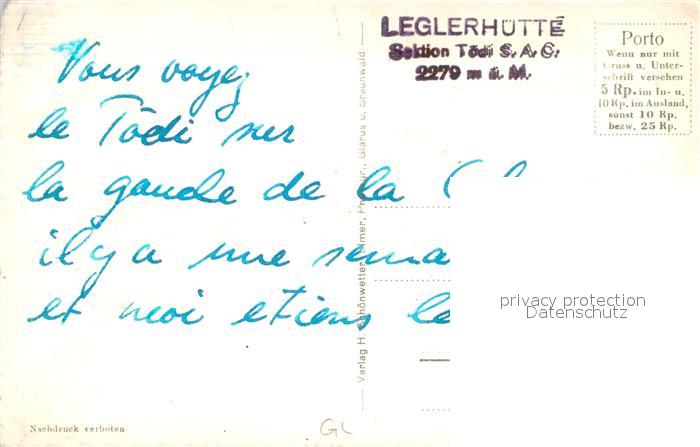 LEGLERHÜTTE
Sektion Tödi S. A. C.
2279 m ü. M.
Porto
Wenn nur mit
Gruss u. Unter-
schrift versehen
5 Rp. im In- u.
10 Rp. im Ausland,
sonst 10 Rp.
bezw. 25 Rp.
Vous voyez
le Tödi sur
la gauche de la
il y a une sema
et moi étions
Verlag H. Schönwetter-Elmer, Glarus u. Braunwald
privacy protection
Datenschutz
Nachdruck verboten
GL